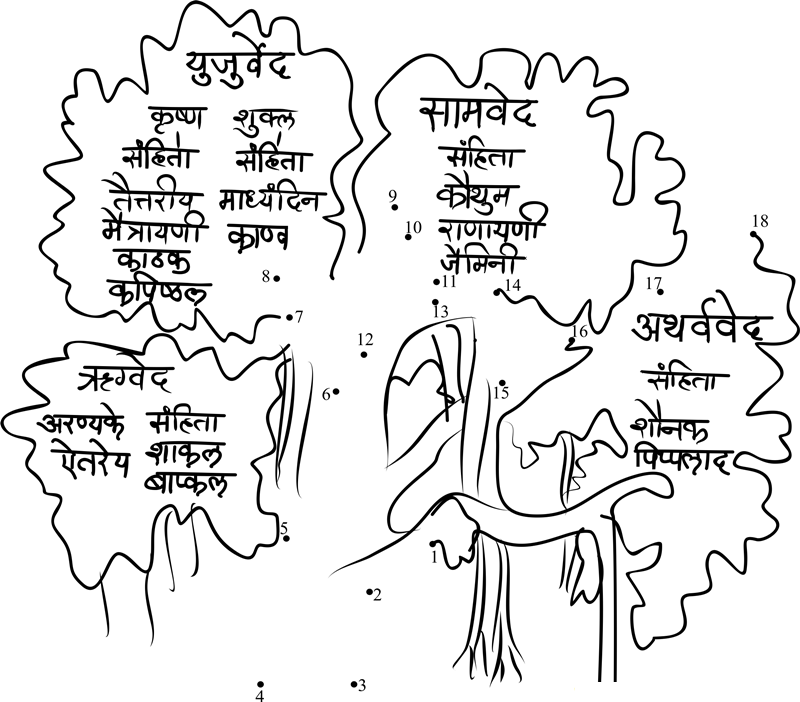 युजुर्वेद
कृष्ण शुक्ल
संहिता संहिता
तैत्तरीय माध्यंदिन
मैत्रायणी काण्व
काठक
कपिष्ठल
सामवेद
संहिता
कौथुम
राणायणी
जैमिनी
ऋग्वेद
अरण्यके संहिता
ऐतरेय शाकल
बाष्कल
अथर्ववेद
संहिता
शौनक
पिप्पलाद
9
10
18
8
11
14
17
7
13
16
12
6
15
5
1
2
4
3